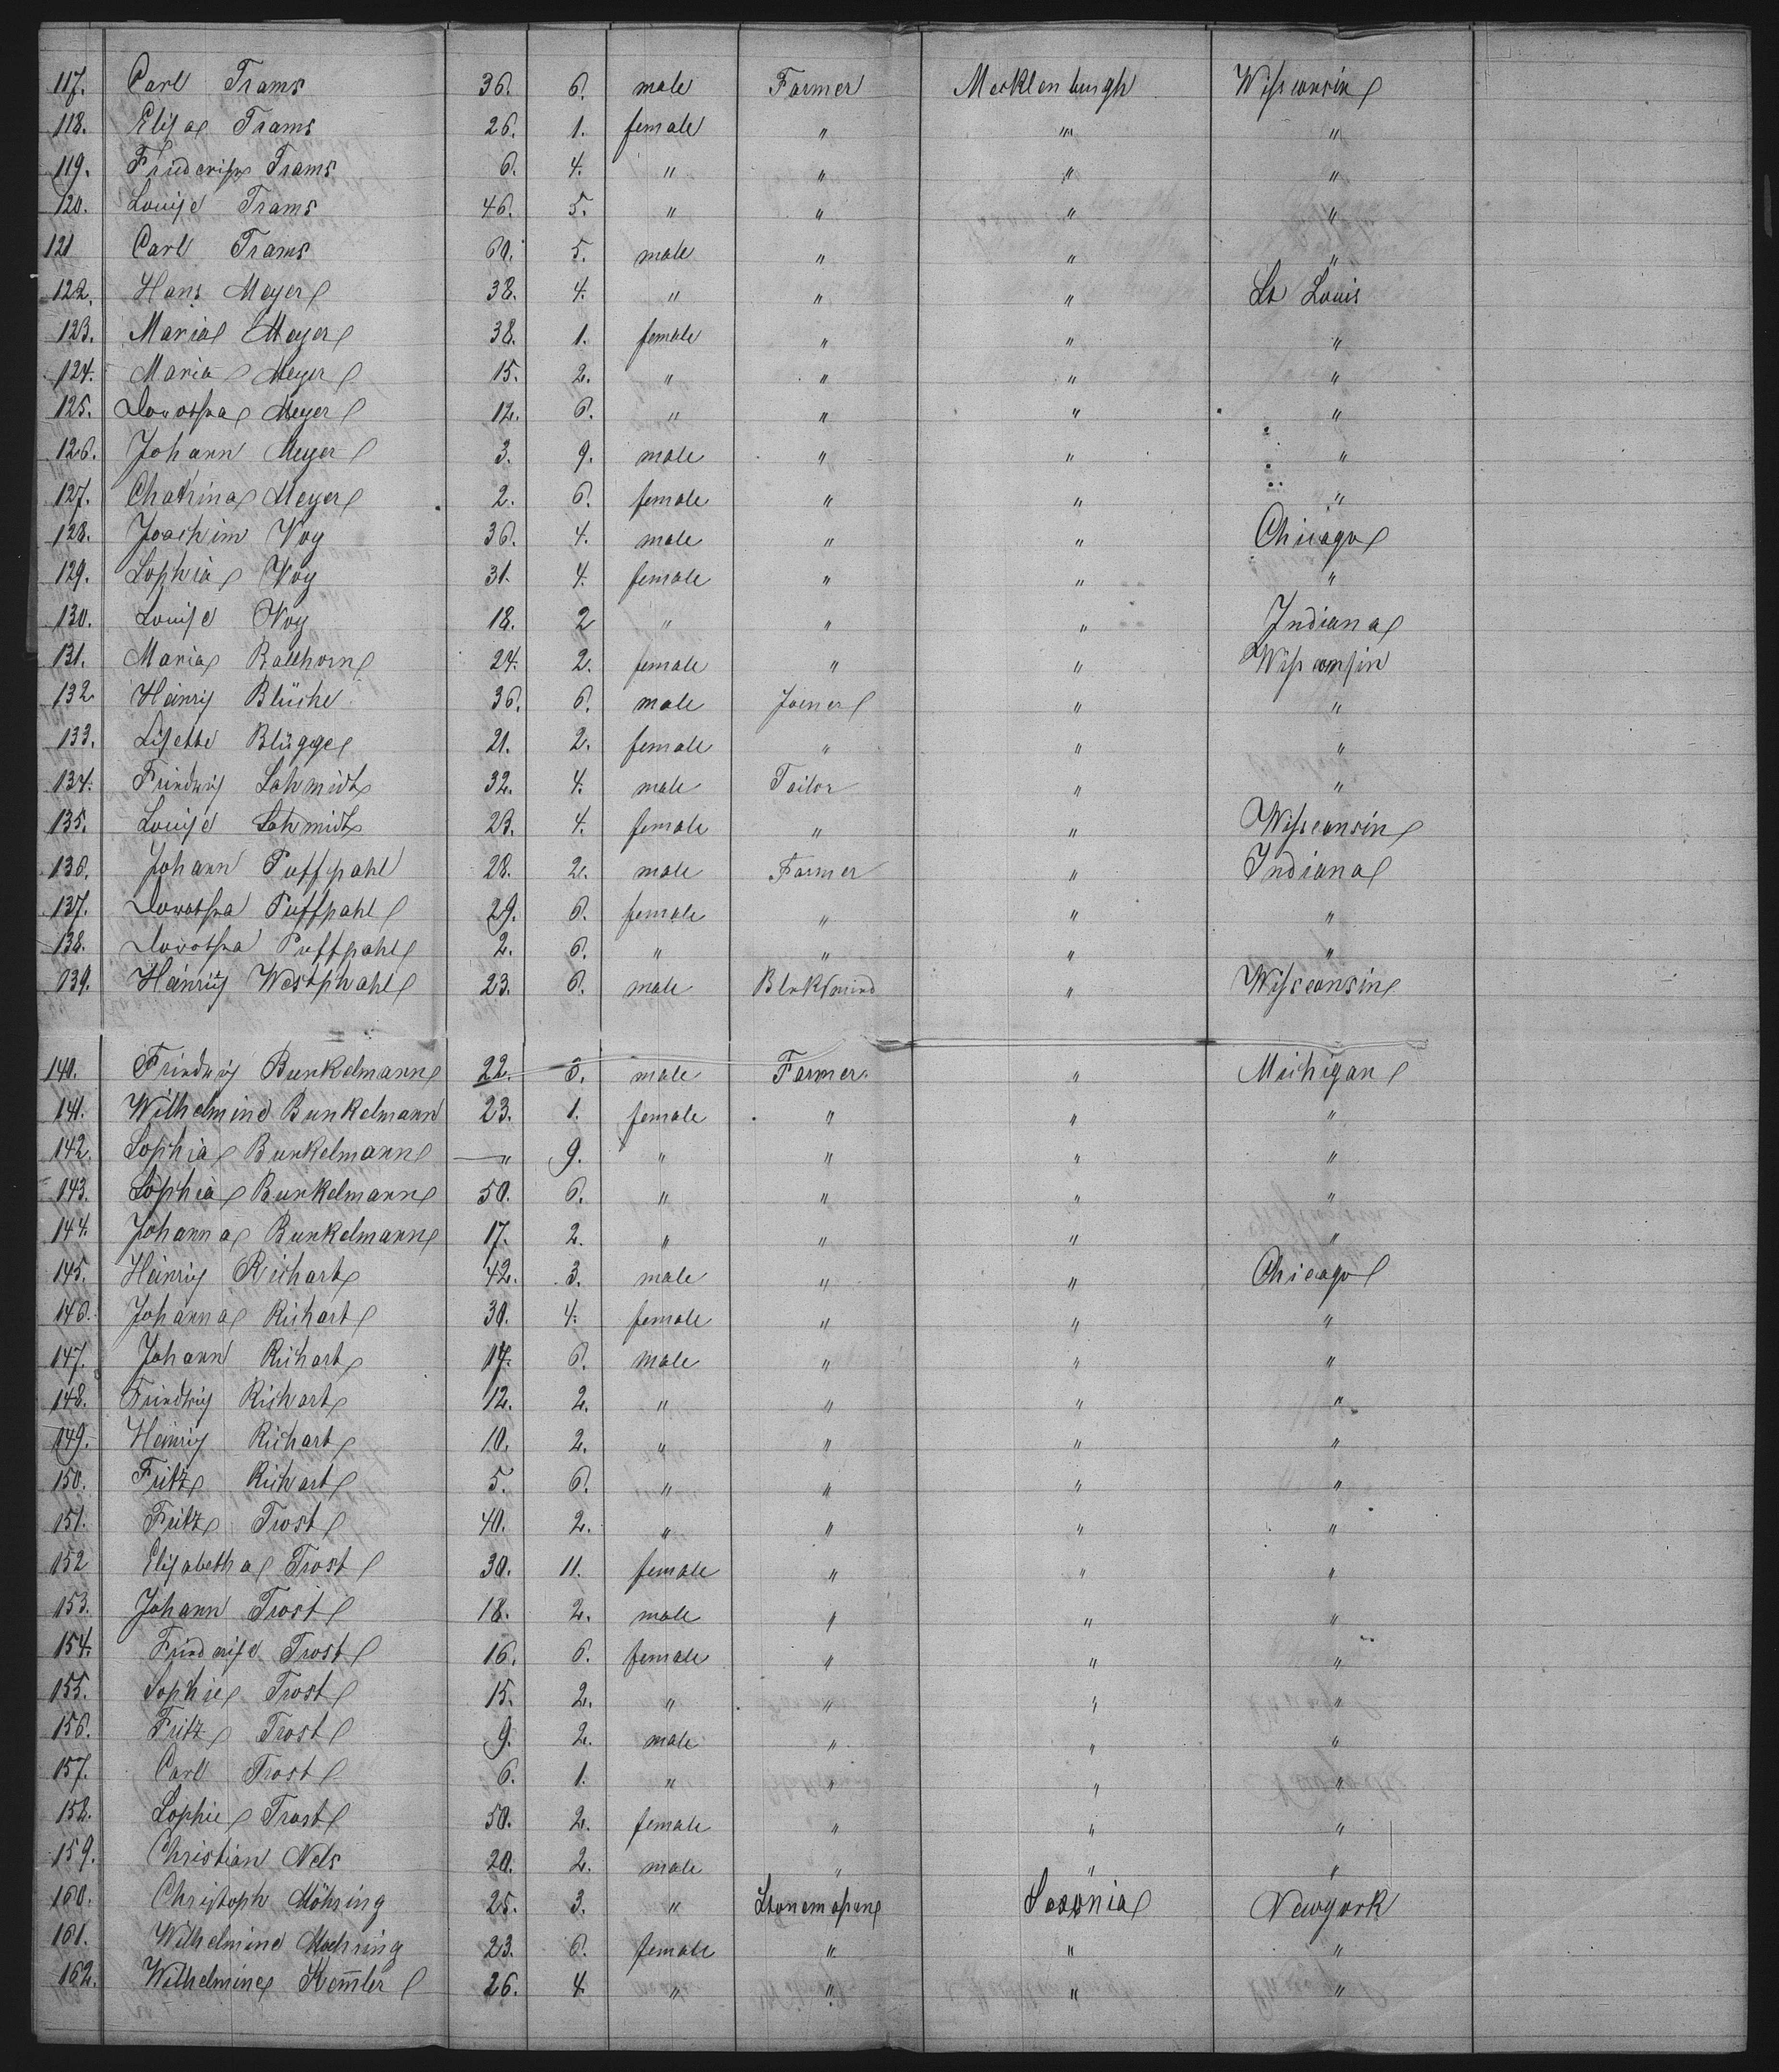 117. Carl Trams 36. 6. male Farmer Mecklenburgh Wisconsin
118. Elisa Trams 26. 1. female " " "
119. Trams 6. 4. " " " "
120. Louise Trams 46. 5. " " " "
121 Carl Trams 60. 5. male " " "
122. Hans Meyer 38. 4. " " " St Louis
123. Maria Meyer 38. 1. female " " "
124. Maria Meyer 15. 2. " " " "
125. Dorothea Meyer 12. 6. " " " "
126. Johann Meyer 3. 9. male " " "
127. Meyer 2. 6. female " " "
128. Joachim Voy 36. 4. male " " Chicago
129. Sophia Voy 31. 4. female " " "
130. Louise Voy 18. 2 " " " Indiana
131. Maria Ballhorn 24. 2. female " " Wisconsin
132 Heinrig Blüche 36. 6. male Joiner " "
133. Lisette Blügge 21. 2. female " " "
134. Friedrig Schmidt 32. 4. male Tailor " "
135. Louise Schmidt 23. 4. female " " Wisconsin
136. Johann Puffpahl 28. 2. male Farmer " Indiana
137. Dorothea Puffpahl 29. 6. female " " "
138. Dorothea Puffpahl 2. 6. " " " "
139. Heinrig Westphahl 23. 6. male " Wisconsin
140. Friedrig Bunkelmann 22. 6. male Farmer " Michigan
141. Wilhelmine Bunkelmann 23. 1. female " " "
142. Sophia Bunkelmann — " 9. " " " "
143. Sophia Bunkelmann 50. 6. " " " "
144. Johanna Bunkelmann 17. 2. " " " "
145. Heinrig Richart 42. 3. male " " Chicago
146. Johanna Richart 30. 4. female " " "
147. Johann Richart 17. 6. male " " "
148. Friedrig Richart 12. 2. " " " "
149. Heinrig Richart 10. 2. " " " "
150. Fritz Richart 5. 6. " " " "
151. Fritz Trost 40. 2. " " " "
152 Elisabetha Trost 30. 11. female " " "
153. Johann Trost 18. 2. male " " "
154. Friedrise Trost 16. 6. female " " "
155. Sophie Trost 15. 2. " " " "
156. Fritz Trost 9. 2. male " " "
157. Carl Trost 6. 1. " " " "
158. Sophie Trost 50. 2. female " " "
159. Christian Nels 20. 2. male " " "
160. Christoph Möhring 25. 3. " Stonemasone Saxonia Newyork
161. Wilhelmine Moehring 23. 6. female " " "
162. Wilhelmine Kem̅ler 26. 4 " " " "